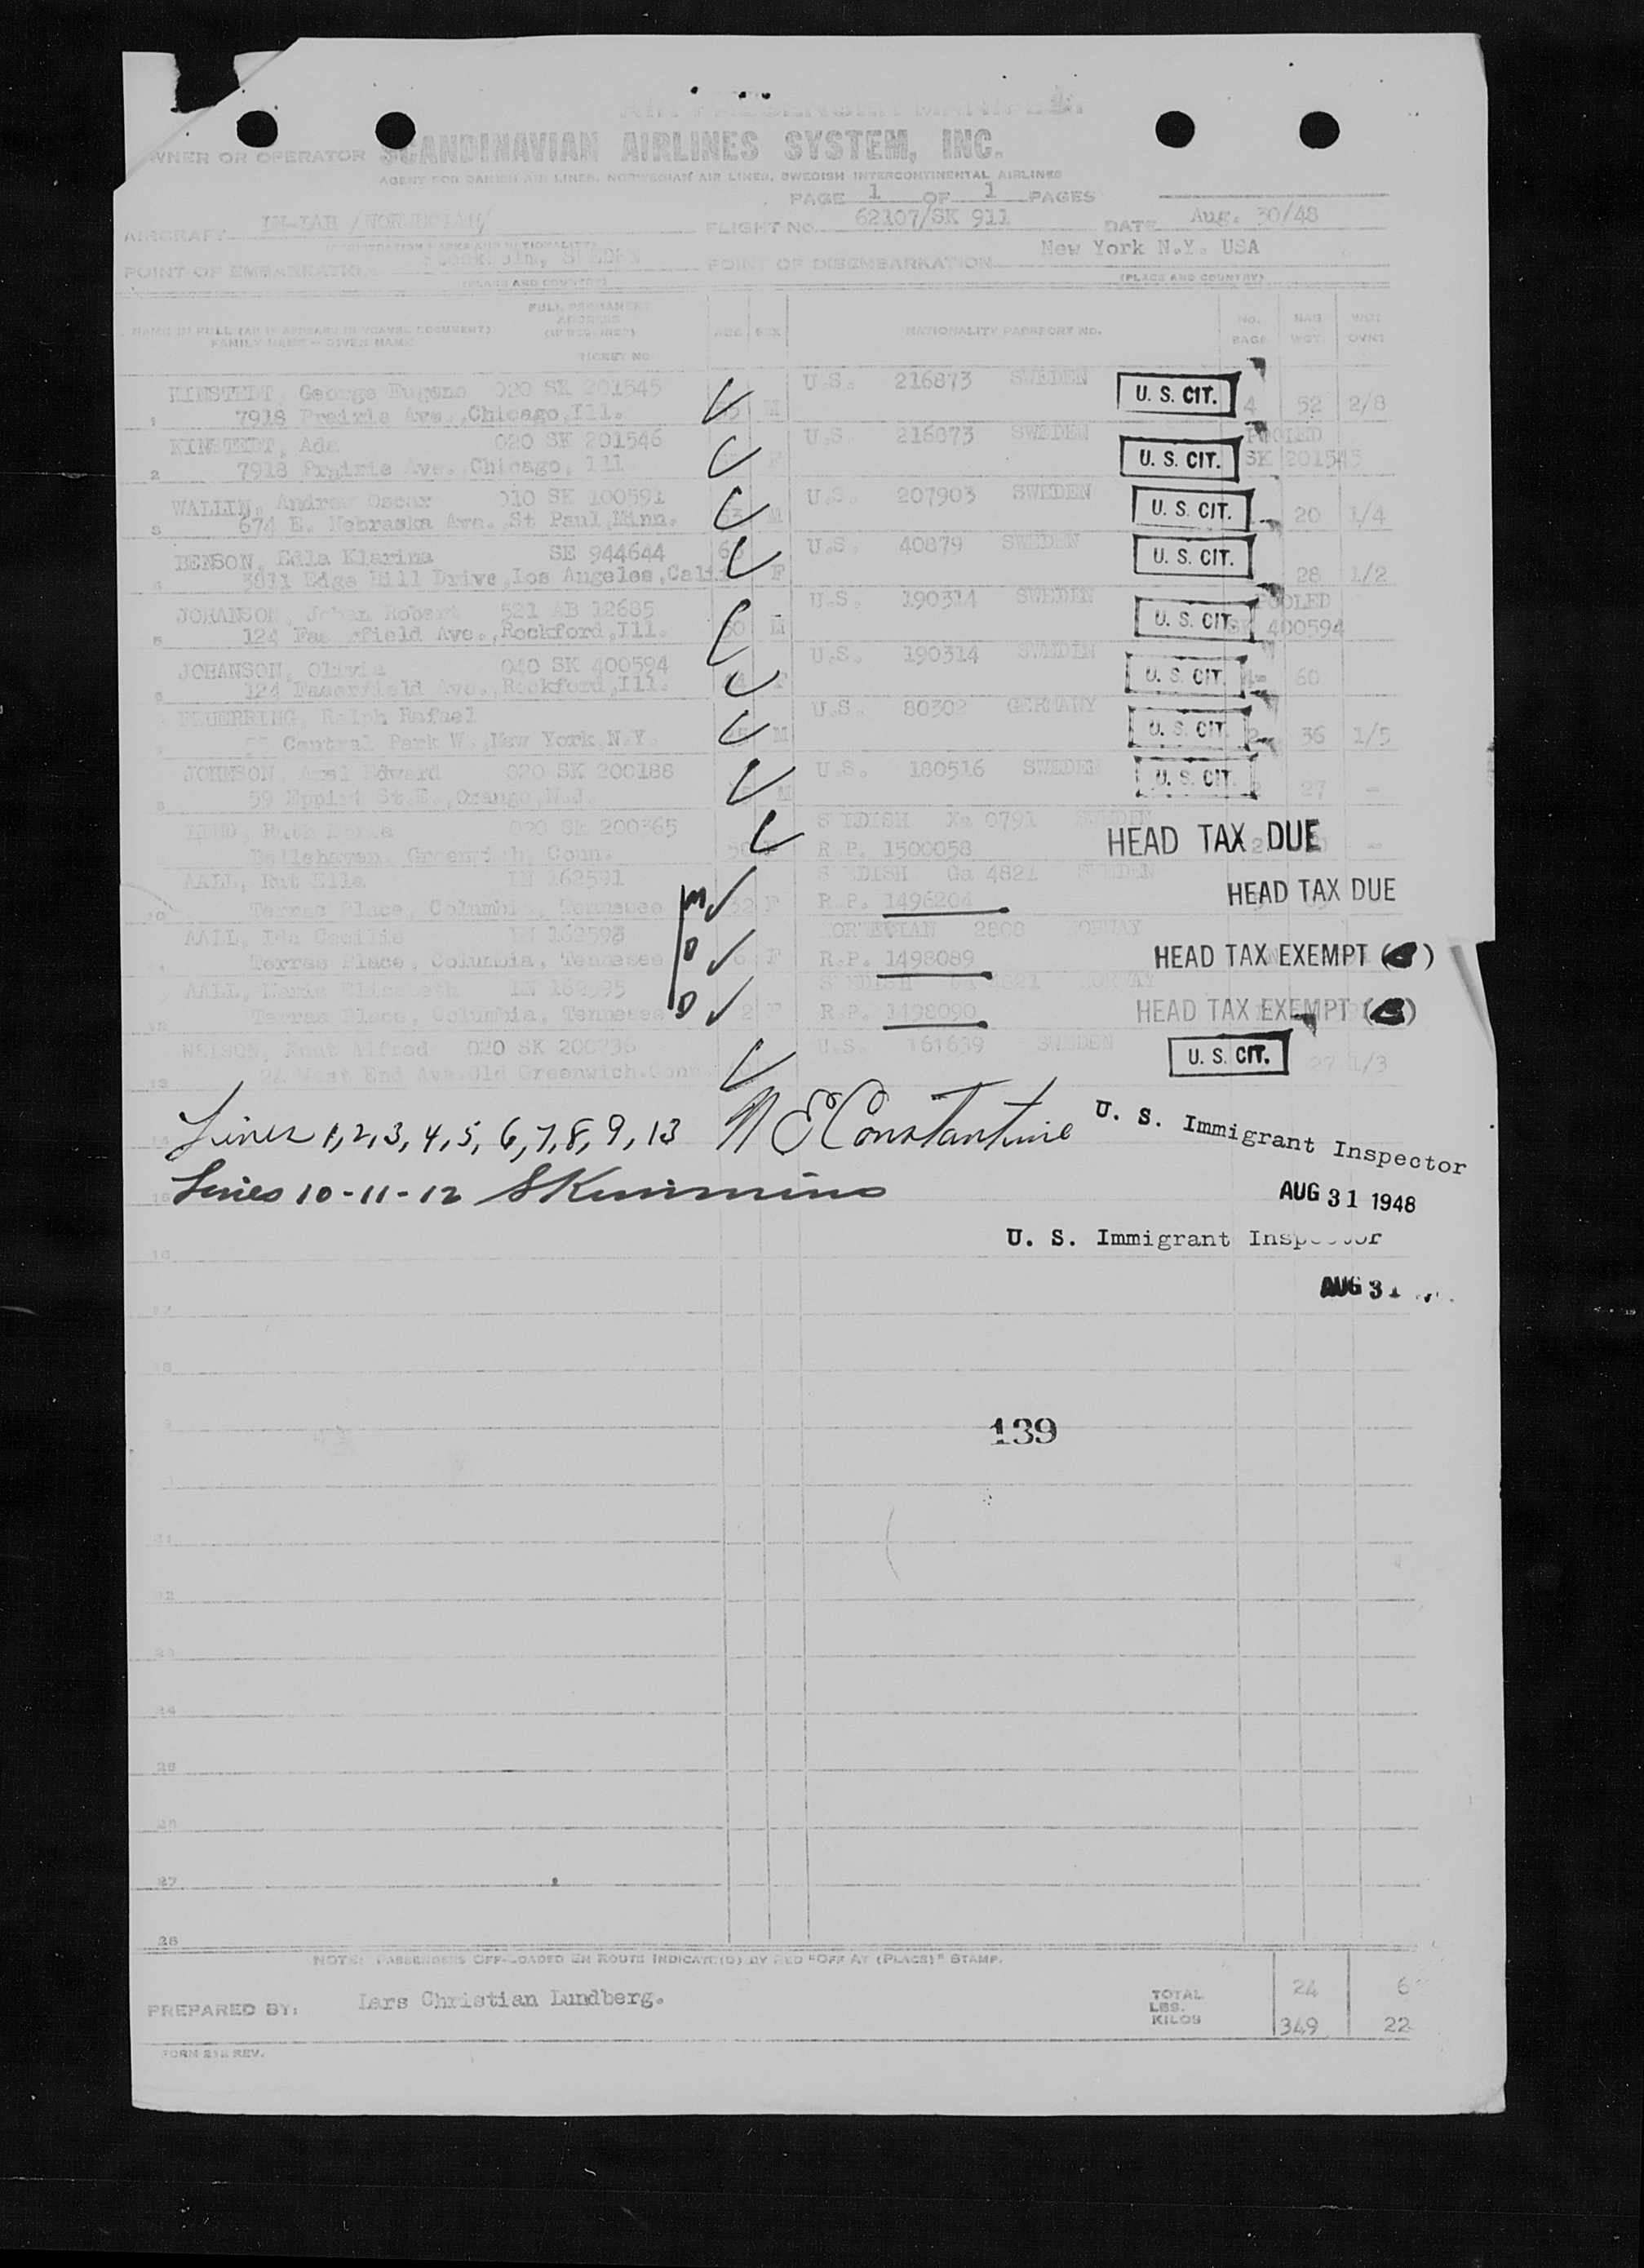 SCANDINAVIAN AIRLINES SYSTEM, INC.
OWNER OR OPERATOR
AGENT FOR DANISH AIR LINES, NORWEGIAN AIR LINES, SWEDISH INTERCONTINENTAL AIRLINES
PAGE 1 OF 1 PAGES
AIRCRAFT FLIGHT NO. 62107/SK 911 DATE Aug. 30/48
POINT OF EMBARKATION SWEDEN POINT OF DISEMBARKATION New York N.Y. USA
(PLACE AND COUNTRY) (PLACE AND COUNTRY)
NAME IN FULL (AS IT APPEARS IN TRAVEL DOCUMENT) FULL PERMANENT ADDRESS (IF REQUIRED) AGE SEX NATIONALITY PASSPORT NO. NO. BAGS BAG WGT. WGT. OVWT
FAMILY NAME — GIVEN NAME TICKET NO.
KINSTEDT, George Eugene 020 SK 201545 U.S. 216873 SWEDEN U. S. CIT.
1 7918 Prairie Ave., Chicago, Ill. M 4 52 2/8
KINSTEDT, Ada 020 SK 201546 U.S. 216873 SWEDEN U. S. CIT. POOLED
2 7918 Prairie Ave., Chicago, Ill F SK 201545
WALLIN, Andrew Oscar 010 SK 100591 U.S. 207903 SWEDEN U. S. CIT.
3 674 E. Nebraska Ave. St Paul, Minn. M 20 1/4
BENSON, Edla Klarina SE 944644 U.S. 40879 SWEDEN U. S. CIT.
4 3811 Edge Hill Drive, Los Angeles, Calif F 28 1/2
JOHANSON, Johan Robert 521 AB 12685 U.S. 190314 SWEDEN U. S. CIT. POOLED
5 124 Ave., Rockford, Ill. M SK 400594
JOHANSON, Olivia 040 SK 400594 U.S. 190314 SWEDEN U. S. CIT.
6 124 Ave., Rockford, Ill. F 60
FEUERRING, Ralph Rafael U.S. 80302 GERMANY U. S. CIT.
7 Central Park W., New York N.Y. M 2 36 1/5
JOHNSON, Axel Edward 020 SK 200188 U.S. 180516 SWEDEN U. S. CIT.
8 59 St. E., Orange, N.J. M 27 -
020 SK 200365 SWEDISH Xa 0791 SWEDEN HEAD TAX DUE
Bellehaven, Greenwich, Conn. R.P. 1500058 2 -
AALL, Rut Ella LN 162591 SWEDISH Ga 4821 SWEDEN HEAD TAX DUE
10 Terras Place, Columbia, Tennesee 32 F R.P. 1496204
AALL, Ida Cecilie LN 162593 NORWEGIAN 2808 NORWAY
Terras Place, Columbia, Tennesee 6 F R.P. 1498089 HEAD TAX EXEMPT
AALL, Marie Elisabeth LN 162595 SWEDISH Ga 4821 NORWAY
12 Terras Place, Columbia, Tennesee 2 F R.P. 1498090 HEAD TAX EXEMPT
NELSON, Knut Alfred 020 SK 200736 U.S. 161639 SWEDEN U. S. CIT.
13 24 West End Ave. Old Greenwich. Conn 27 1/3
Lines 1,2,3,4,5,6,7,8,9,13 N E Constantine U. S. Immigrant Inspector
AUG 31 1948
Lines 10-11-12
U. S. Immigrant Inspector
AUG 31
139
NOTE: PASSENGERS OFF-LOADED EN ROUTE INDICATE(D) BY RED "OFF AT (PLACE)" STAMP.
PREPARED BY: Lars Christian Lundberg.
TOTAL 24 6
LBS.
KILOS 349 22
FORM 212 REV.